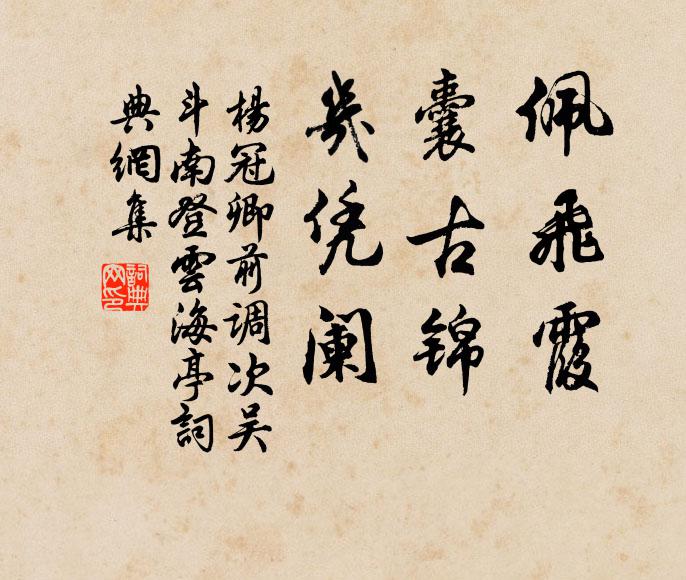 佩飛霞
囊古锦
幾凭阑
楊冠卿前调次吴
斗南登雲海亭詞
典網集
詞典
网印